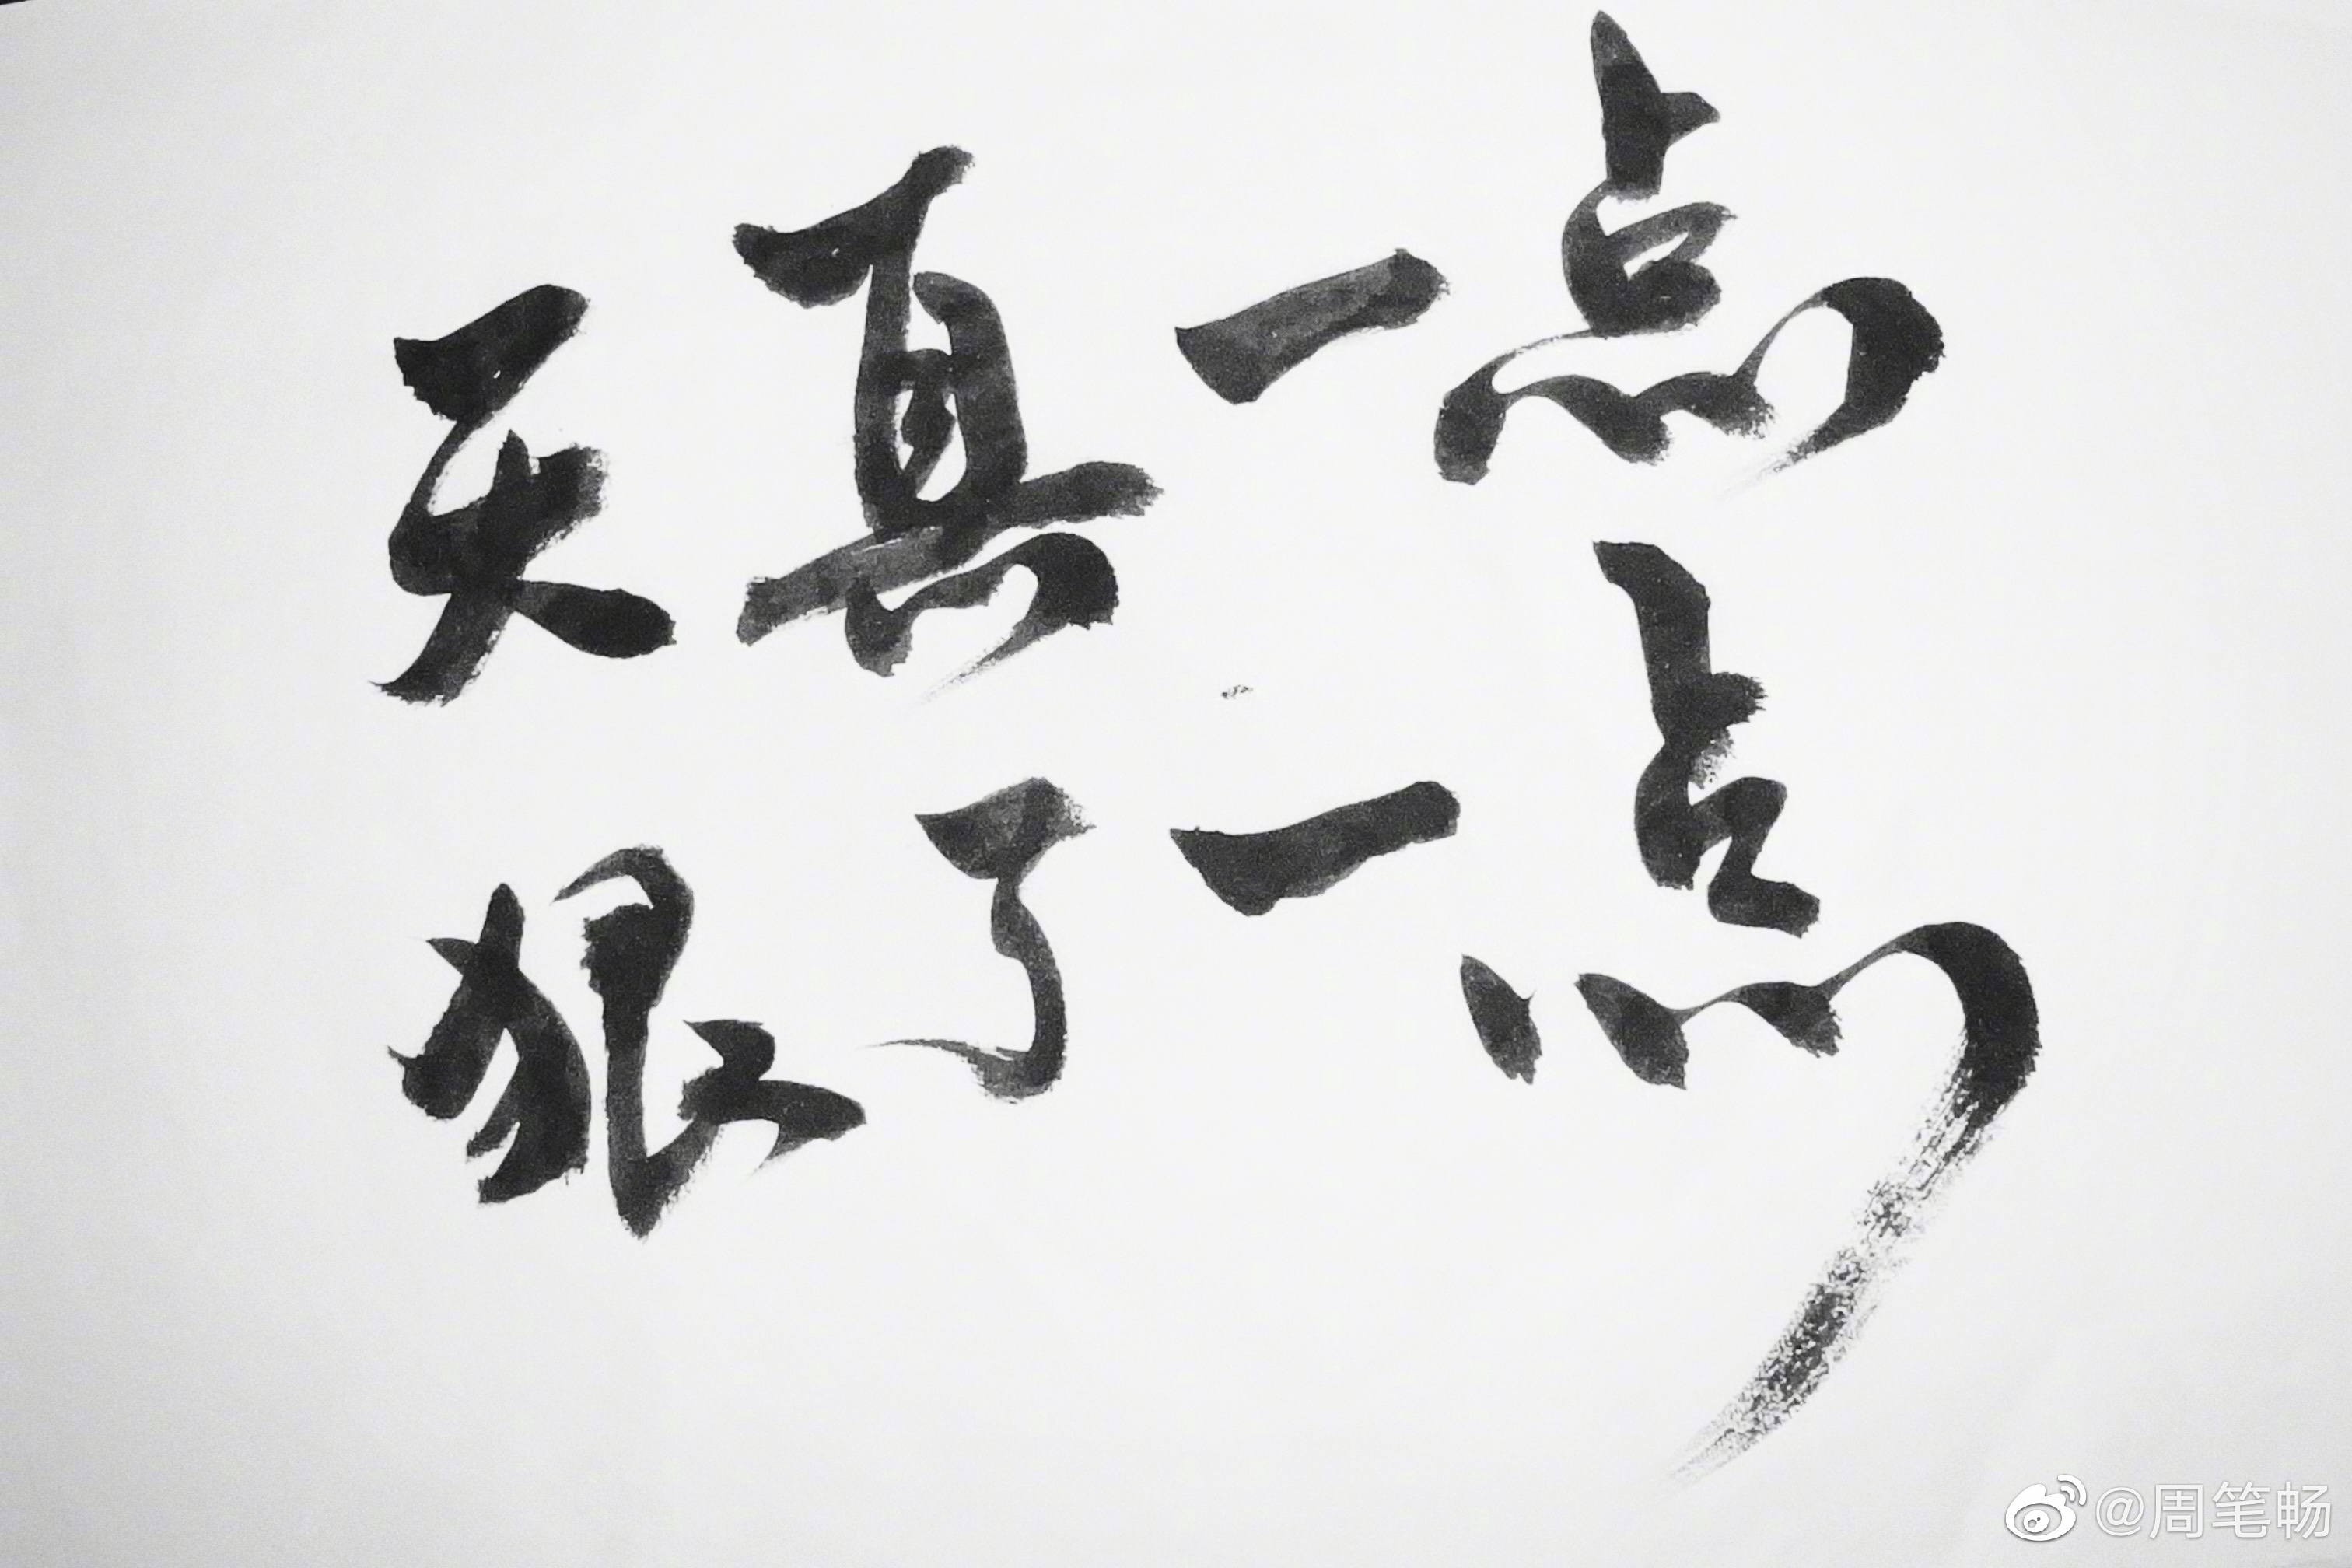 天真一点
狠了一点
@周笔畅